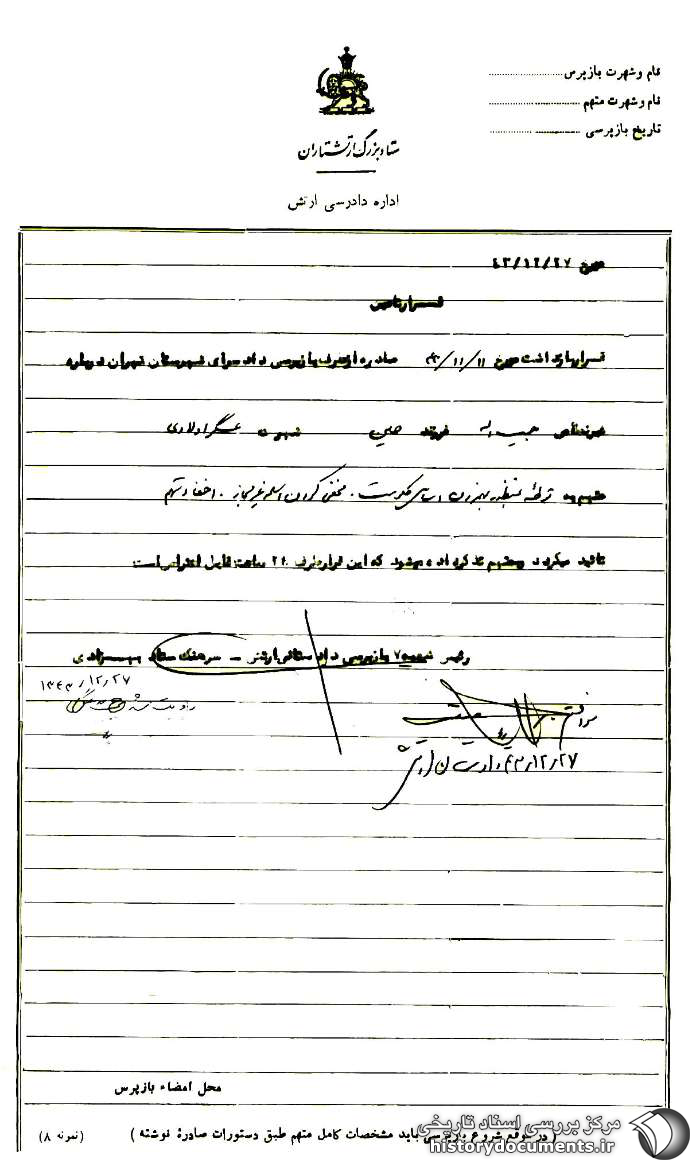 نام و شهرت بازپرس
نام و شهرت متهم
تاریخ بازپرسی
ستاد بزرگ ارتشتاران
اداره دادرسی ارتش
۴۳/۱۲/۲۷
قرار
قرار بازداشت ۱۱/۱۱/ صادره از طرف بازپرسی دادسرای شهرستان تهران درباره
حبیب اله فرزند حسین شهرت عسگراولادی
متهم به توطئه بمنظور بهمزدن اساس حکومت . مخفی کردن اسلحه غیرمجاز . اخفاء متهم
تائید میگردد و بمتهم تذکر داده میشود که این قرار ظرف ۲۴ ساعت قابل اعتراض است
رئیس شعبه ۷ بازپرسی دادستانی ارتش - سرهنگ ستاد بهزادی
۱۳۴۳/۱۲/۲۷
رویت شد
دادستان ارتش ۴۳/۱۲/۲۷
محل امضاء بازپرس
( در موقع شروع بازپرسی باید مشخصات کامل متهم طبق دستورات صادره نوشته ) (نمونه ۸)
مرکز بررسی اسناد تاریخی
historydocuments.ir